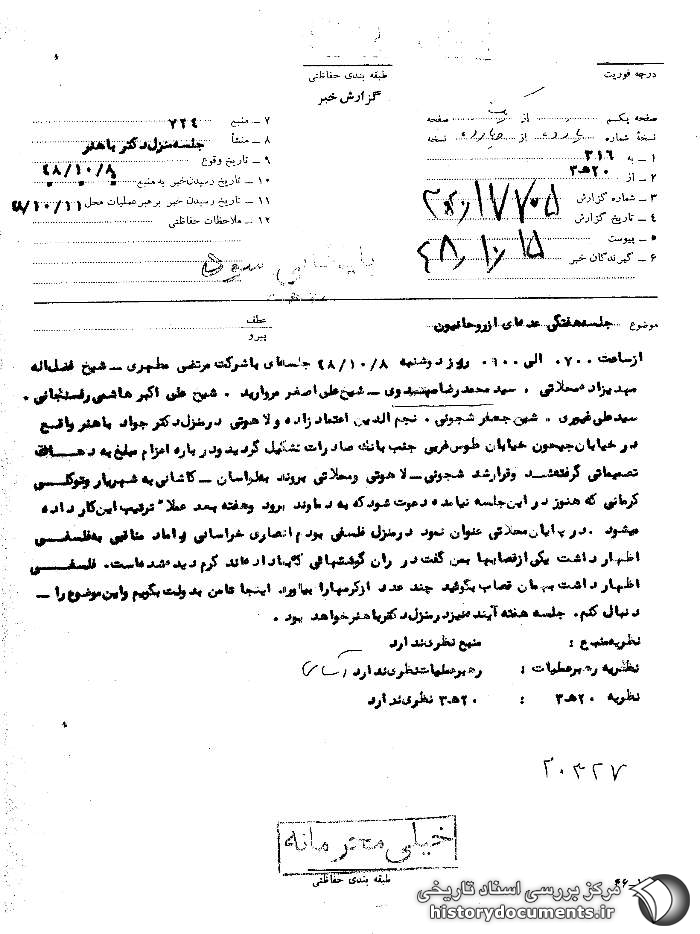 درجه فوریت
طبقه بندی حفاظتی
گزارش خبر
صفحه یکم از یک صفحه
نسخهٔ شماره از نسخه
۱ ـ به ۳۱۶
۲ ـ از ۲۰ هـ ۳
۳ ـ شماره گزارش
۴ ـ تاریخ گزارش ۴۸/۱۰/۱۵
۵ ـ پیوست
۶ ـ گیرندگان خبر
۷ ـ منبع ۷۲۴
۸ ـ منشأ جلسه منزل دکتر باهنر
۹ ـ تاریخ وقوع ۴۸/۱۰/۸
۱۰ ـ تاریخ رسیدن خبر به منبع
۱۱ ـ تاریخ رسیدن خبر برهبر عملیات محل ۴۸/۱۰/۱۱
۱۲ ـ ملاحظات حفاظتی
موضوع جلسه هفتگی عده‌ای از روحانیون
عطف
پیرو
از ساعت ۰۷۰۰ الی ۰۹۰۰ روز دوشنبه ۴۸/۱۰/۸ جلسه‌ای با شرکت مرتضی مطهری ـ شیخ فضل‌اله
مهدیزاده محلاتی ، سید محمدرضا مهدوی ـ شیخ علی اصغر مروارید ، شیخ علی اکبر هاشمی رفسنجانی ،
سید علی غیوری ، شیخ جعفر شجونی ، نجم الدین اعتماد زاده و لاهوتی درمنزل دکتر جواد باهنر واقع
در خیابان جیحون خیابان طوس غربی جنب بانک صادرات تشکیل گردید ودرباره اعزام مبلغ به دهـات
تصمیماتی گرفته شد وقرار شد شجونی ـ لاهوتی ومحلاتی بروند به ـ کاشانی به شهریار وتوکلـی
کرمانی که هنوز در این جلسه نیامده دعوت شود که به دماوند برود وهفته بعد عملا" ترتیب این کار داده
میشود . در پایان محلاتی عنوان نمود درمنزل فلسفی بودم انصاری خراسانی و امام مناقبی به فلسفی
اظهار داشت یکی از قصابها بمن گفت در ران گوشتهائی که بما داده‌اند کرم دیده شده است. فلسفی
اظهار داشت بهمان قصاب بگوئید چند عدد از کرمها را بیاورد اینجا تا من بدولت بگویم و این موضوع را ـ
دنبال کنم . جلسه هفته آینده نیز درمنزل دکتر باهنر خواهد بود .
نظریه منبع : منبع نظری ندارد
نظریه رهبر عملیات : رهبر عملیات نظری ندارد
نظریه ۲۰ هـ ۳ : ۲۰ هـ ۳ نظری ندارد
۲۰۳۲۷
خیلی محرمانه
طبقه بندی حفاظتی
مرکز بررسی اسناد تاریخی
historydocuments.ir